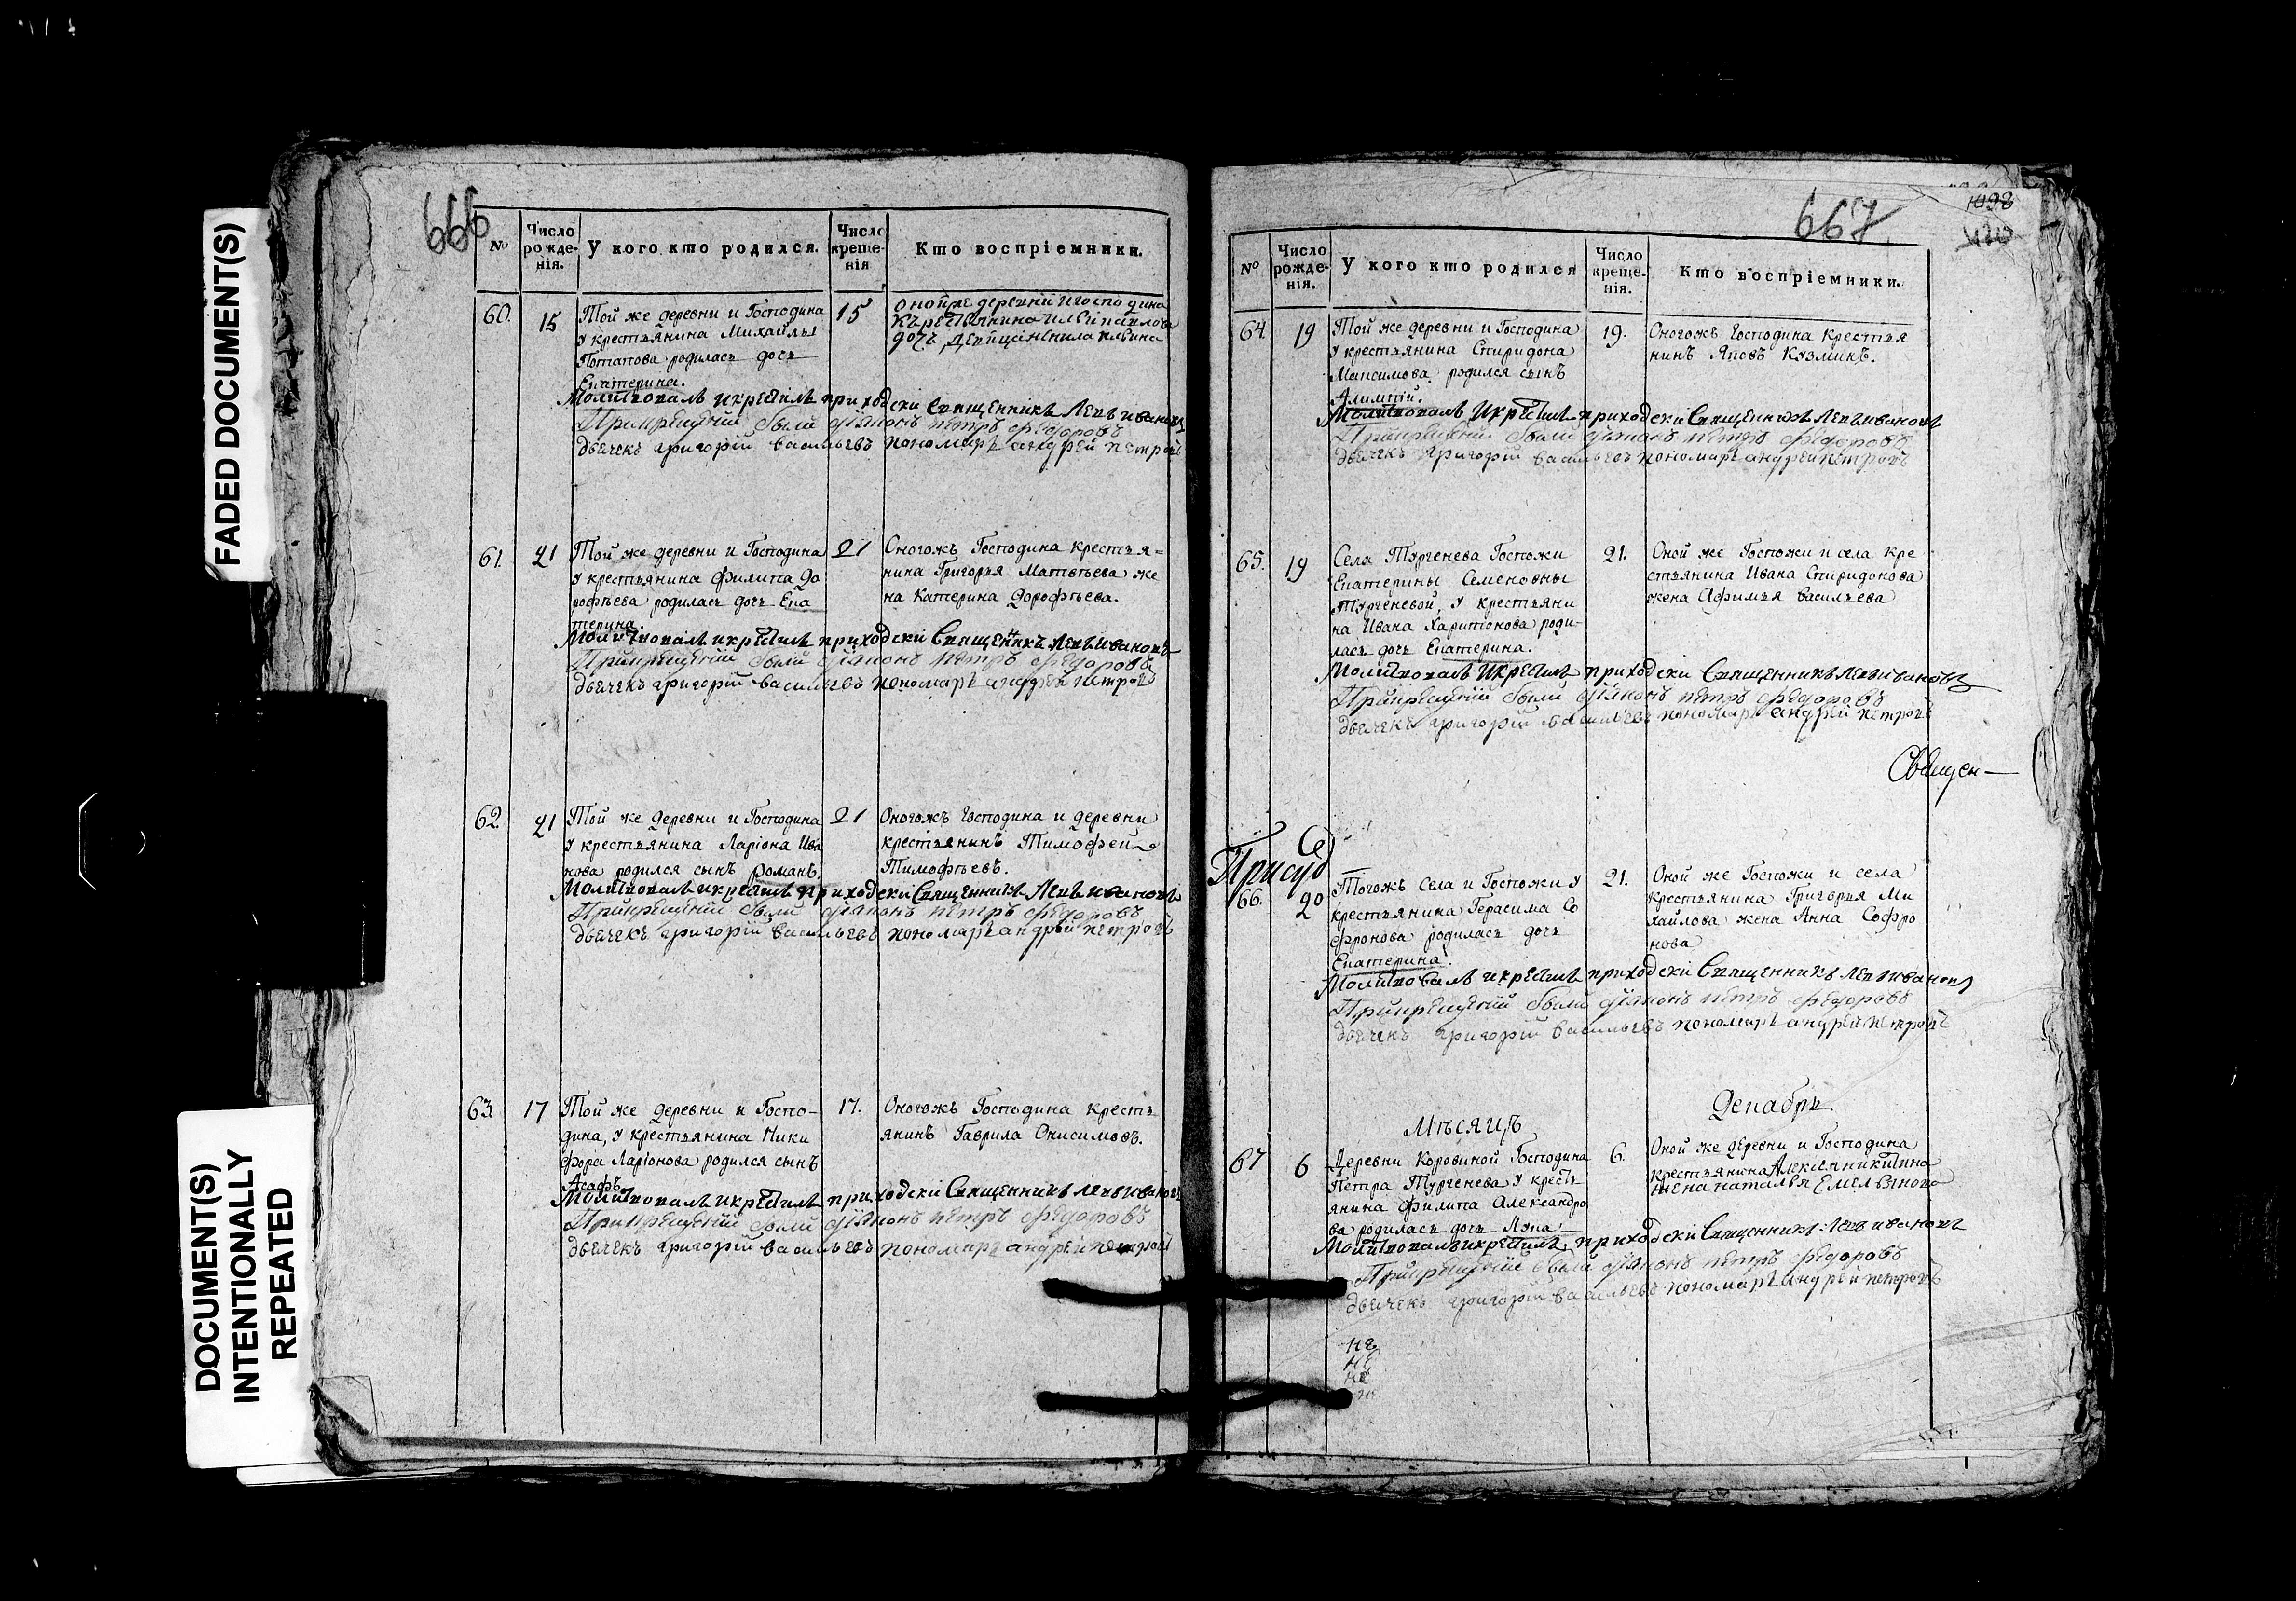 FADED DOCUMENT(S)
DOCUMENT(S)
INTENTIONALLY
REPEATED
666
№
Число рожде-нія.
У кого кто родился.
Число креще-нія
Кто воспріемники.
60.
15
Той же деревни и Господина
у крестьянина Михайлы
Потапова родилась дочь
Екатерина.
15
Онойже деревни игосподина
Молитвовалъ икрестилъ приходски Священникъ Левъ Ивановъ
Прикрещеніи были діяконъ петръ федоровъ
дьячекъ григорій васильевъ пономарь андрей петровъ
61.
21
Той же деревни и Господина
у крестьянина Филипа До
рофѣева родилась дочь Ека
терина.
21
Оногожъ Господина крестья=
нина Григорья Матвѣева же
на Катерина Дорофѣева.
Молитвовалъ икрестилъ приходски Священникъ Левъ Ивановъ
Прикрещеніи были діяконъ петръ федоровъ
дьячекъ григорій васильевъ пономарь андрей петровъ
62.
21
Той же деревни и Господина
у крестьянина Ларіона Ива
нова родился сынъ Романъ.
21
Оногожъ Господина и деревни
крестьянинъ Тимофей
Тимофѣевъ.
Молитвовалъ икрестилъ приходски Священникъ Левъ Ивановъ
Прикрещеніи были діяконъ петръ федоровъ
дьячекъ григорій васильевъ пономарь андрей петровъ
63.
17
Той же деревни и Госпо-
дина, у крестьянина Ники
фора Ларіонова родился сынъ
Асафъ.
17.
Оногожъ Господина кресть
янинъ Гаврила Онисимовъ.
Молитвовалъ икрестилъ приходски Священникъ Левъ Ивановъ
Прикрещеніи были діяконъ петръ федоровъ
дьячекъ григорій васильевъ пономарь андрей петровъ
667
№
Число рожде-нія.
У кого кто родился
Число креще-нія.
Кто воспріемники.
64
19
Той же деревни и Господина
у крестьянина Спиридона
Максимова родился сынъ
Алимпій.
19.
Оногожъ Господина Крестья
нинъ Яковъ Кузминъ.
Молитвовалъ Икрестилъ приходски Священникъ Левъ Ивановъ
Прикрещеніи были діяконъ петръ федоровъ
дьячекъ григорій васильевъ пономарь андрей петровъ
65.
19
Села Тургенева Госпожи
Екатерины Семеновны
Тургеневой, у крестьяни
на Ивана Харитонова роди-
лась дочь Екатерина.
21.
Оной же Госпожи и села кре
стьянина Ивана Спиридонова
жена Афимья Васильева
Молитвовалъ Икрестилъ приходски Священникъ Левъ Ивановъ
Прикрещеніи были діяконъ петръ федоровъ
дьячекъ григорій васильевъ пономарь андрей петровъ
Священ-
Се
Присуд
66.
20
Тогожъ Села и Госпожи у
крестьянина Герасима Со
фронова родилась дочь
Екатерина.
21.
Оной же Госпожи и села
крестьянина Григорья Ми
хайлова жена Анна Софро
нова
Молитвовалъ икрестилъ приходски Священникъ Левъ Ивановъ
Прикрещеніи были діяконъ петръ федоровъ
дьячекъ григорій васильевъ пономарь андрей петровъ
Мѣсяцъ
Декабрь.
67
6
Деревни Коровиной Господина
Петра Тургенева у кресть
янина Филипа Александро
ва родилась дочь Анна.
6.
Оной же деревни и Господина
жена наталья Емельянова
Молитвовалъ икрестилъ приходски Священникъ Левъ Ивановъ
Прикрещеніи были діяконъ петръ федоровъ
дьячекъ григорій васильевъ пономарь андрей петровъ